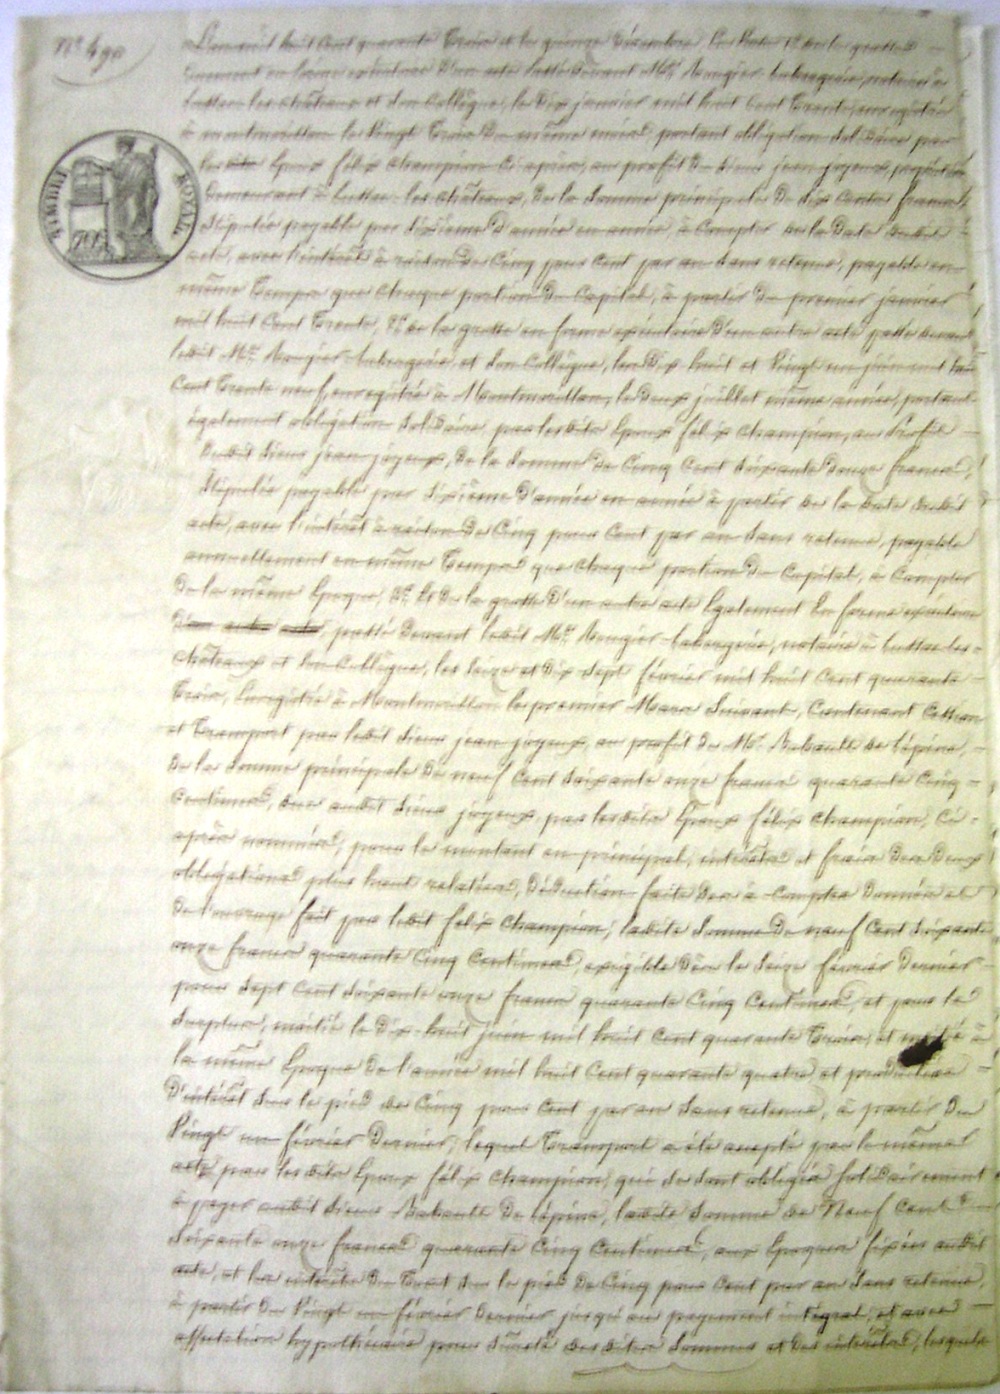 N° 490
TIMBRE ROYAL
L'an mil huit cent quarante trois et le quinze Décembre, En Vertu 1° de la grosse
en forme exécutoire d'un acte passé devant Me Augier-Labergerie, notaire à
Lussac les châteaux et son collègue, le dix janvier mil huit cent trente, enregistré
à Montmorillon le Vingt trois du même mois, portant obligation solidaire par
les Epoux félix champion ci après, au profit du sieur jean joyeux,
demeurant à Lussac-les châteaux, de la somme principale de six cents francs,
stipulée payable par dixième d'année en année, à compter de la date dudit
acte, avec l'intérêt à raison de cinq pour cent par an sans retenue, payable en
même temps que chaque portion du capital, à partir du premier janvier
mil huit cent trente, 2° de la grosse en forme exécutoire d'un autre acte passé devant
ledit Me Augier-Labergerie, et son collègue, les dix huit et Vingt un juin mil huit
cent trente neuf, enregistré à Montmorillon, le deux juillet même année, portant
également obligation solidaire, par lesdits Epoux félix champion, au Profit
dudit sieur jean joyeux, de la somme de cinq cent soixante douze francs,
stipulée payable par sixième d'année en année à partir de la date dudit
acte, avec l'intérêt à raison de cinq pour cent par an sans retenue, payable
annuellement en même temps que chaque portion du capital, à compter
de la même Epoque, 3° Et de la grosse d'un autre acte Egalement En forme exécutoire
passé devant ledit Me Augier-Labergerie, notaire à Lussac les
châteaux et son collègue, les seize et dix sept février mil huit cent quarante
trois, Enregistré à Montmorillon le premier Mars suivant, contenant cession
et transport par ledit sieur jean joyeux, au profit de Mr Babault de lépine,
de la somme principale de neuf cent soixante onze francs quarante cinq
centimes, due audit sieur joyeux, par lesdits Epoux félix champion, ci-
après nommés, pour le montant en principal, intérêts et frais des deux
obligations plus haut relatées, déduction faite des à-comptes donnés et
de l'ouvrage fait par ledit félix champion; ladite somme de neuf cent soixante
onze francs quarante cinq centimes, exigible dès le seize février dernier
pour sept cent soixante onze francs quarante cinq centimes, et pour le
surplus, moitié le dix-huit juin mil huit cent quarante trois, et moitié à
la même Epoque de l'année mil huit cent quarante quatre et productive
d'intérêt sur le pied de cinq pour cent par an sans retenue, à partir du
Vingt un février dernier; lequel transport a été accepté par le même
acte par lesdits Epoux félix champion, qui se sont obligés solidairement
à payer audit sieur Babault de lépine, ladite somme de Neuf cent
soixante onze francs quarante cinq centimes, aux Epoques fixées audit
acte, et les intérêts du tout sur le pied de cinq pour cent par an sans retenue,
à partir du Vingt un février dernier jusqu'au payement intégral, et avec
affectation hypothécaire pour sûreté desdites sommes et des intérêts, lesquels